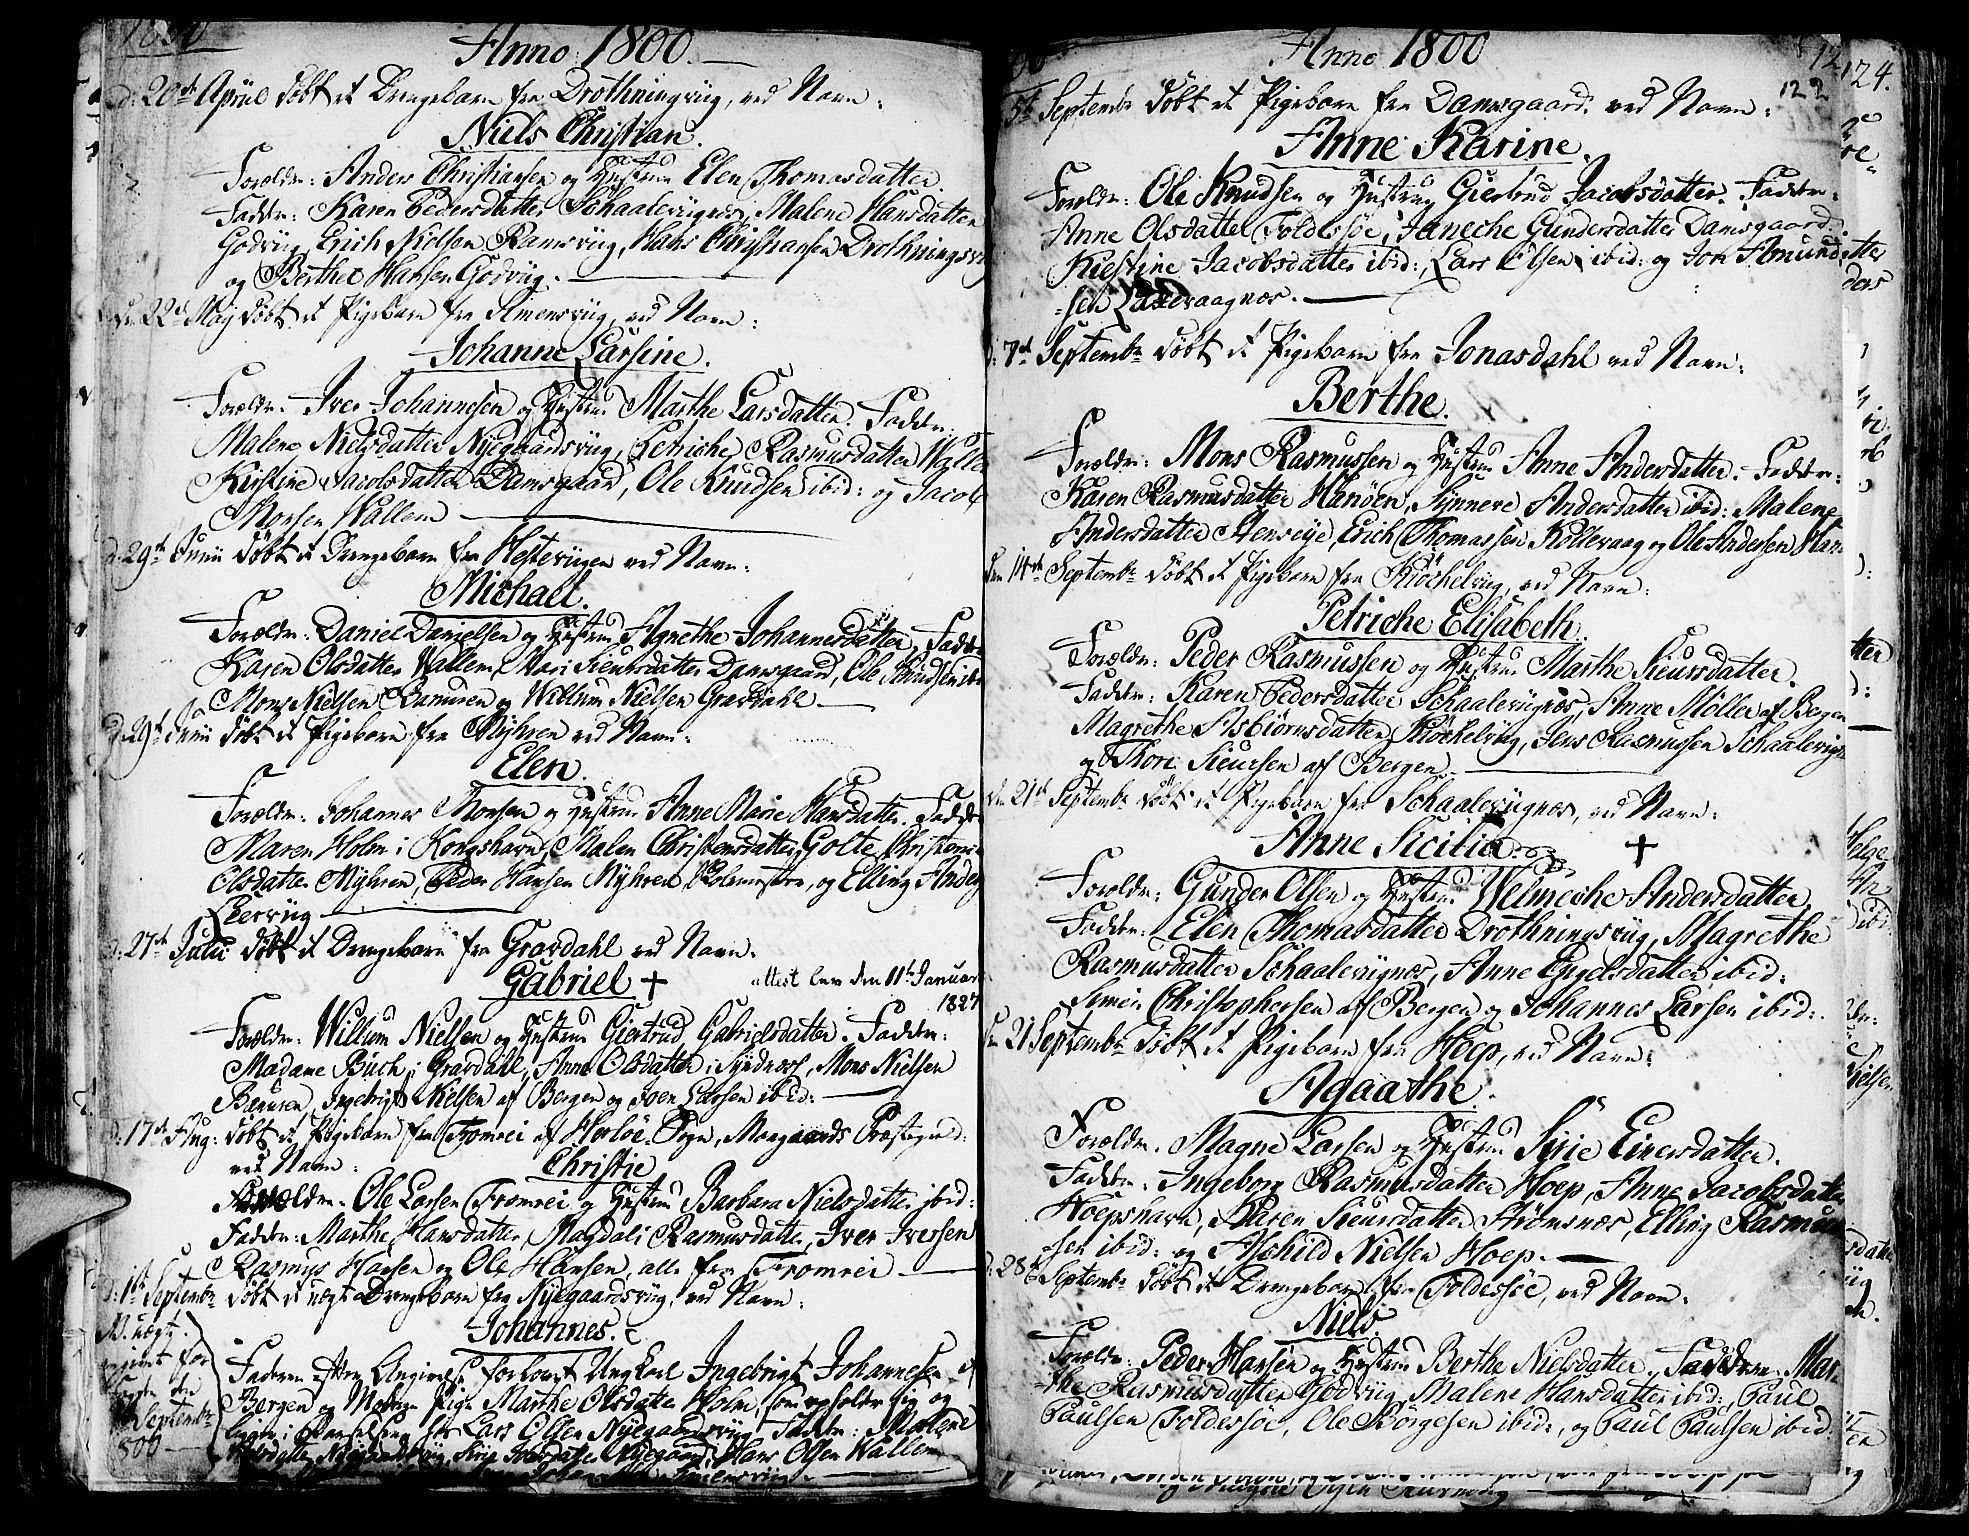 Anno 1800.
d: 20de Apriil döbt et Drengebarn fra Drothningviig, ved Navn:
Niels Christian.
Forældre: Anders Christiansen og Hustrue Elen Thomasdatter.
Faddre: Karen Pedersdatter Schaaleviignæs, Malene Hansdatter
Godviig, Erich Nielsen Ramsviig, Hans Christiansen Drothningsvi
og Berthel Hansen Godviig.
22de Maj döbt et Pigebarn fra Simensviig, ved Navn:
Johanne Larsine.
Forældre: Iver Johannesen og Hustrue Marthe Larsdatter. Faddre:
Malene Nielsdatter Nyegaardsviig, Petriche Rasmusdatter Walle
Kirstine Jacobsdatter Damsgaard, Ole Knudsen ibid: og Jacob
Monsen Wallem
d: 29de Junii döbt et Drengebarn fra Hesteviigen ved Navn:
Michael.
Forældre: Daniel Danielsen og Hustrue Agnethe Johannesdatter, Fadd
Karen Olsdatter Wallem, Mari Sieursdatter Damsgaard, Ole Knudsen ibi
Mons Nielsen Bænusen og Willum Nielsen Gravdahl
d: 29de Junii döbt et Pigebarn fra Myhren ved Navn:
Elen.
Forældre: Johannes Monsen og Hustrue Anne Marie Hansdatter. Fadd
Maren Holm i Kongshavn, Malen Christensdatter Golte, Christi
Olsdatter Myhren, Peder Hansen Myhren Skolemester, og Elling Ander
Sherviig
d: 27de Julii döbt et Drengebarn fra Gravdahl ved Navn:
Gabriel + attest lev den 11te Januar
1827
Forældre: Willum Nielsen og Hustrue Giertrud Gabrielsdatter. Faddre:
Madame Büch i Gravdahl, Anne Olsdatter i Syndnæs, Mons Nielsen
Bænusen, Ingebrigt Nielsen af Bergen og Joen Larsen ibid:
d: 17de Aug: döbt et Pigebarn fra Fromrei af Herlöe Sogn, Mangaards Præstegield:
ved Navn: Christie
Forældre: Ole Larsen Fromrei og Hustrue Barbara Nielsdatter ibid:
Faddre: Marthe Hansdatter, Magdali Rasmusdatter, Iver Iversen
Rasmus Hansen og Ole Hansen, alle fra Fromrei
d: 1ste Septembr döbt et uægte Drengebarn fra Nyegaardsviig, ved Navn:
Johannes.
Faderen efter Angivelse forlovet Ungkarl Ingebrigt Johannesen af
Bergen og Moder Pige Marthe Olsdatter Holm, som opholder sig og
ligger i Barselseng hos Lars Olsen Nyegaardsviig. Faddre: Malene
Nielsdatter Nyegaardsviig, Hans Olsen Wallem
Anno 1800
122 124.
5te Septembr döbt et Pigebarn fra Damsgaard, ved Navn:
Anne Karine.
Forældre: Ole Knudsen og Hustrue Giertrud Jacobsdatter. Faddre:
Anne Olsdatter Toldessöe, Janeche Gundersdatter Damsgaard
Kirstine Jacobsdatter ibid: Lars Olsen ibid: og Jon Amund
-sen Laxevaagnæs.
d: 7de Septembr döbt et Pigebarn fra Jonasdahl ved Navn:
Berthe.
Forældre: Mons Rasmussen og Hustrue Anne Andersdatter. Faddre:
Karen Rasmusdatter Hanöen, Synneve Andersdatter ibid: Malene
Andersdatter Stensöye, Erich Thomassen Kollevaag og Ole Andersen Han
den 14de Septembr döbt et Pigebarn fra Kiöchelviig, ved Navn:
Petriche Elisabeth.
Forældre: Peder Rasmussen og Hustrue Marthe Sieursdatter.
Faddre: Karen Pedersdatter Schaaleviignæs, Anne Möller af Bergen
Magrethe Asbiörnsdatter Kiöchelviig, Jens Rasmussen Schaaleviign
og Thore Sieursen af Bergen
den 21de Septembr döbt et Pigebarn fra Schaaleviignæs, ved Navn:
Anne Sicilia. +
Forældre: Gunder Olsen og Hustrue Welmeche Andersdatter
Faddre: Elen Thomasdatter Drothningsviig, Magrethe
Rasmusdatter Schaaleviignæs, Anne Engelsdatter ibid:
Simen Christophersen af Bergen og Johannes Larsen ibid:
den 21 Septembr döbt et Pigebarn fra Hoep, ved Navn:
Agaathe.
Forældre: Magne Larsen og Hustrue Sirie Einersdatter.
Faddre: Ingeborg Rasmusdatter Hoep, Anne Jacobsdatter
Hoepshavn, Karen Sieursdatter Strömsnæs, Elling Rasmus
-sen ibid: og Aschild Nielsen Hoep.
d: 28de Septembr döbt et Drengebarn fra Toldessöe, ved Navn:
Niels.
Forældre: Peder Hansen og Hustrue Berthe Nielsdatter. Faddere: Mar-
-the Rasmusdatter Godviig, Malene Hansdatter ibid:, Paul
Paulsen Toldessöe, Ole Börgesen ibid:, og Paul Paulsen ibid: